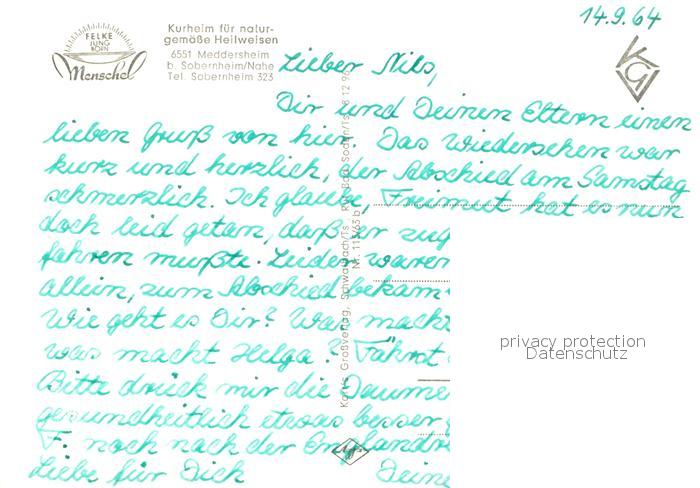 14.9.64
FELKE
JUNG
BORN
Menschel
Kurheim für natur-
gemäße Heilweisen
6551 Meddersheim
b. Sobernheim/Nahe
Tel. Sobernheim 323
Lieber Nils,
Dir und Deinen Eltern einen
lieben Gruß von hier. Das Wiedersehen war
kurz und herzlich, der Abschied am Samstag
schmerzlich. Ich glaube, Freimut hat es nun
doch leid getan, daß er zug
fahren mußte. Leider waren
allein, zum Abschied bekam
Wie geht es Dir? Was macht
was macht Helga? Fährst
Bitte drück mir die Daume
gesundheitlich etwas besser
F. noch nach der Englandr
Liebe für Dich Deine
privacy protection
Datenschutz